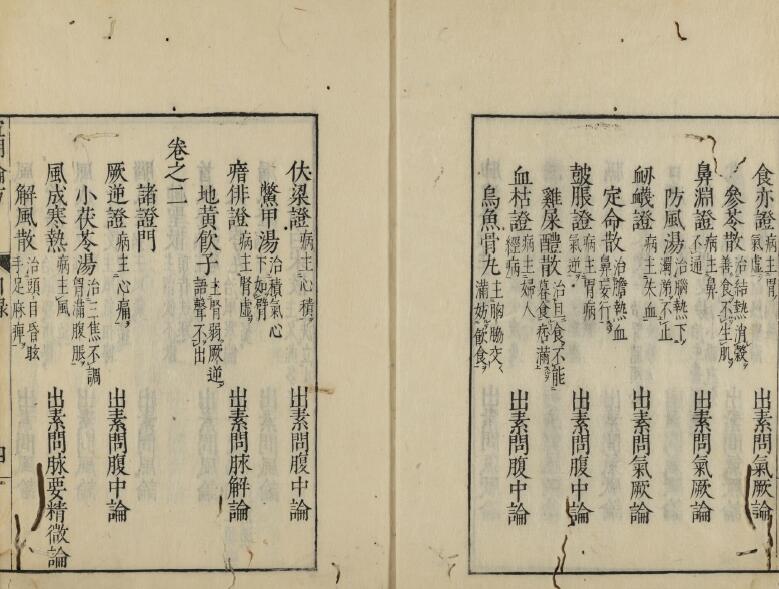 食亦證 病主胃氣虛 出素問氣厥論
參苓散 治結熱消穀善食不生肌
鼻淵證 病主鼻不通 出素問氣厥論
防風湯 治腦熱下濁涕不止
衂衊證 病主衂血 出素問氣厥論
定命散 治膽熱血鼻妄行
皷脹證 病主胃病氣逆 出素問腹中論
雞屎醴散 治旦食不能暮食痞滿
血枯證 病主婦人經病 出素問腹中論
烏魚骨丸 主胸脇支滿妨飲食
伏梁證 病主心積 出素問腹中論
鱉甲湯 治積氣心下如臂
瘖俳證 病主腎虛 出素問脉解論
地黃飲子 主腎弱厥逆語聲不出
卷之二
諸證門
厥逆證 病主心痛 出素問腹中論
小茯苓湯 治三焦不調胃滿腹脹
風成寒熱 病主風 出素問脉要精微論
解風散 治頭目昏眩手足麻痺